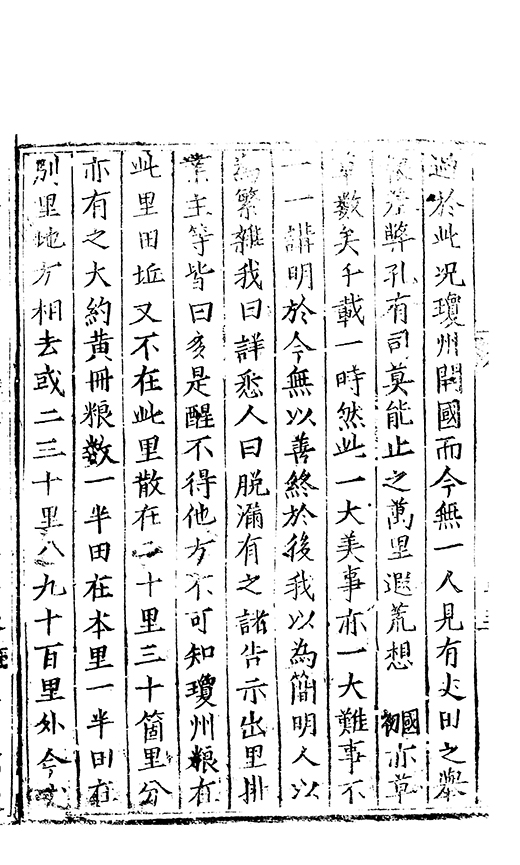 過於此况瓊州開國而今無一人見有丈田之舉
差弊孔有司莫能止之萬里遐荒想國初亦草
數矣千載一時然此一大美事亦一大難事不
一一講明於今無以善終於後我以為簡明人以
為繁雜我曰詳悉人曰脱漏有之諸告示出里排
業主等皆曰亥是醒不得他方不可知瓊州粮有
此里田坵又不在此里散在二十里三十箇里分
亦有之大約黃冊粮数一半田在本里一半田在
別里地方相去或二三十里八九十百里外今